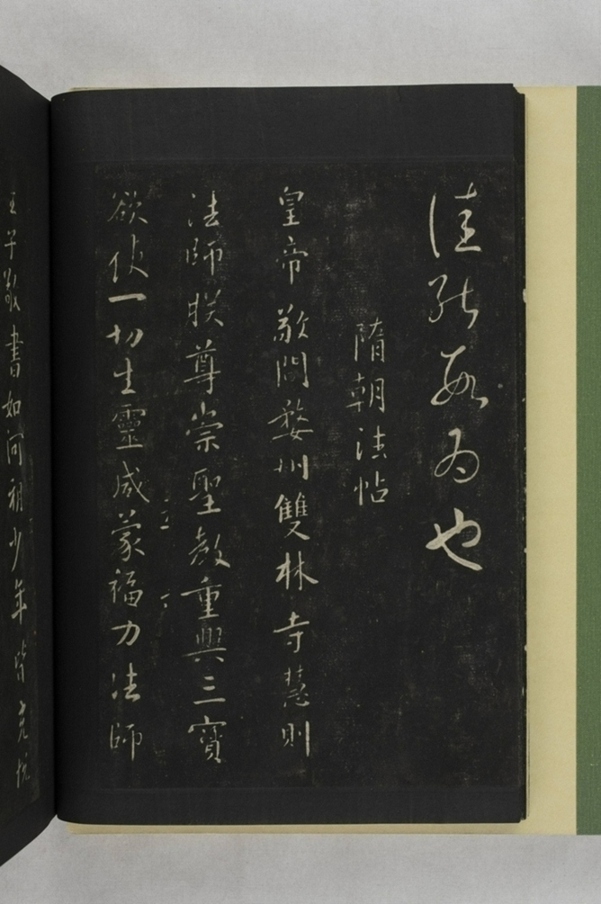 佳能為也
隋朝法帖
皇帝敬問婺州雙林寺慧則
法師朕尊崇聖教重興三寶
欲使一切生靈咸蒙福力法師
王子敬書如河朔少年皆充悅